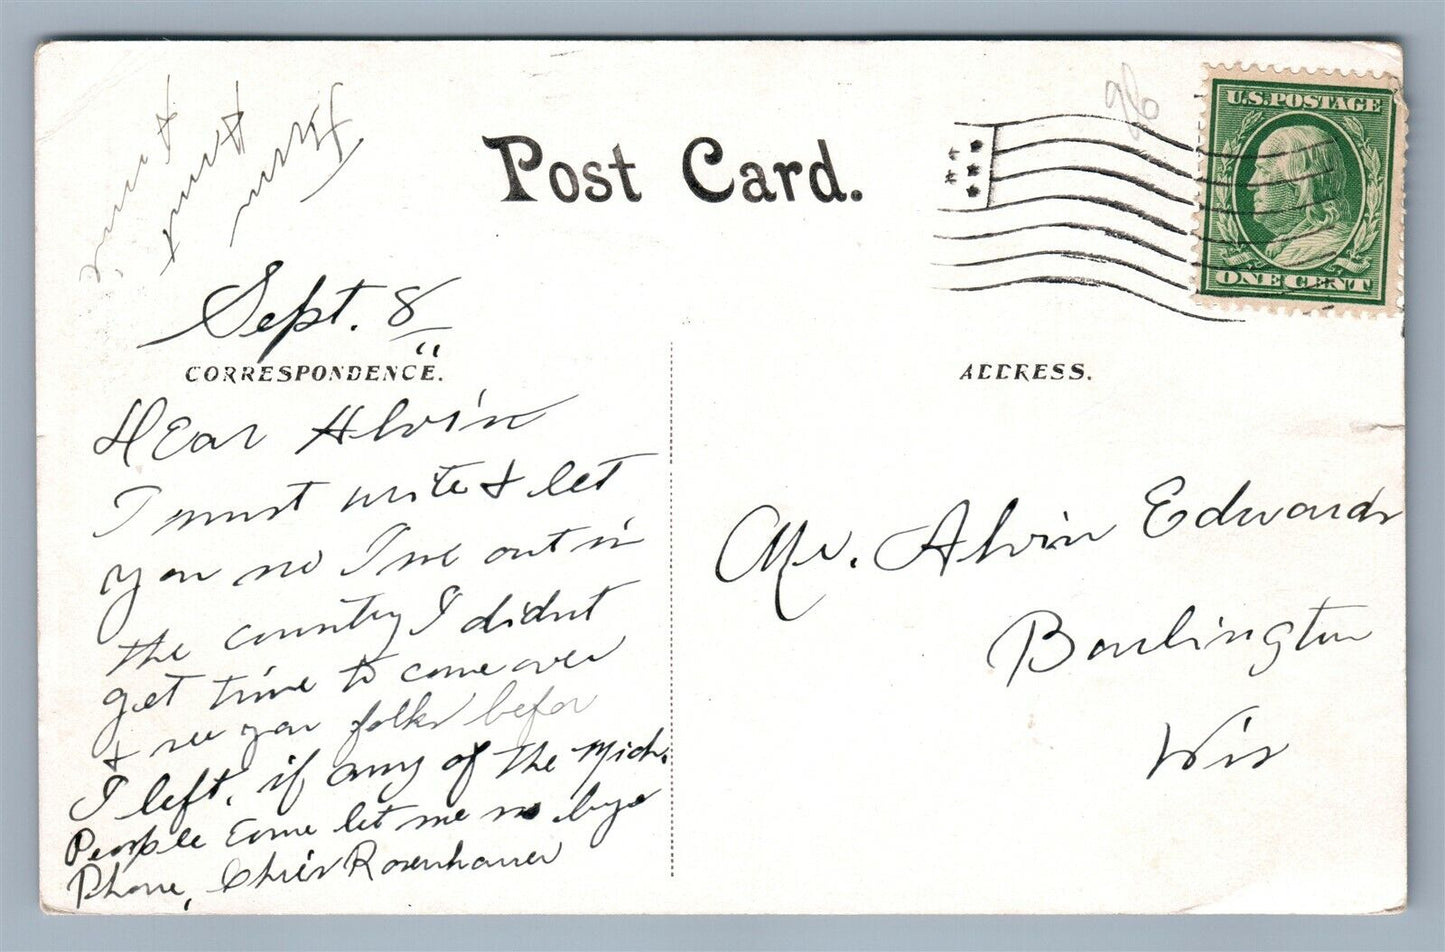 From
Aunt
Anna
Post Card.
U.S. POSTAGE
ONE CENT
Sept. 8
"
CORRESPONDENCE.
ADDRESS.
Dear Alvin
I must write & let
you no I me out in
the country I didnt
get time to come over
& see you folks befor
I left, if any of the Mich.
People come let me no bye
Phone, Chris Rosenhauer
Mr. Alvin Edwards
Bourlington
Wis